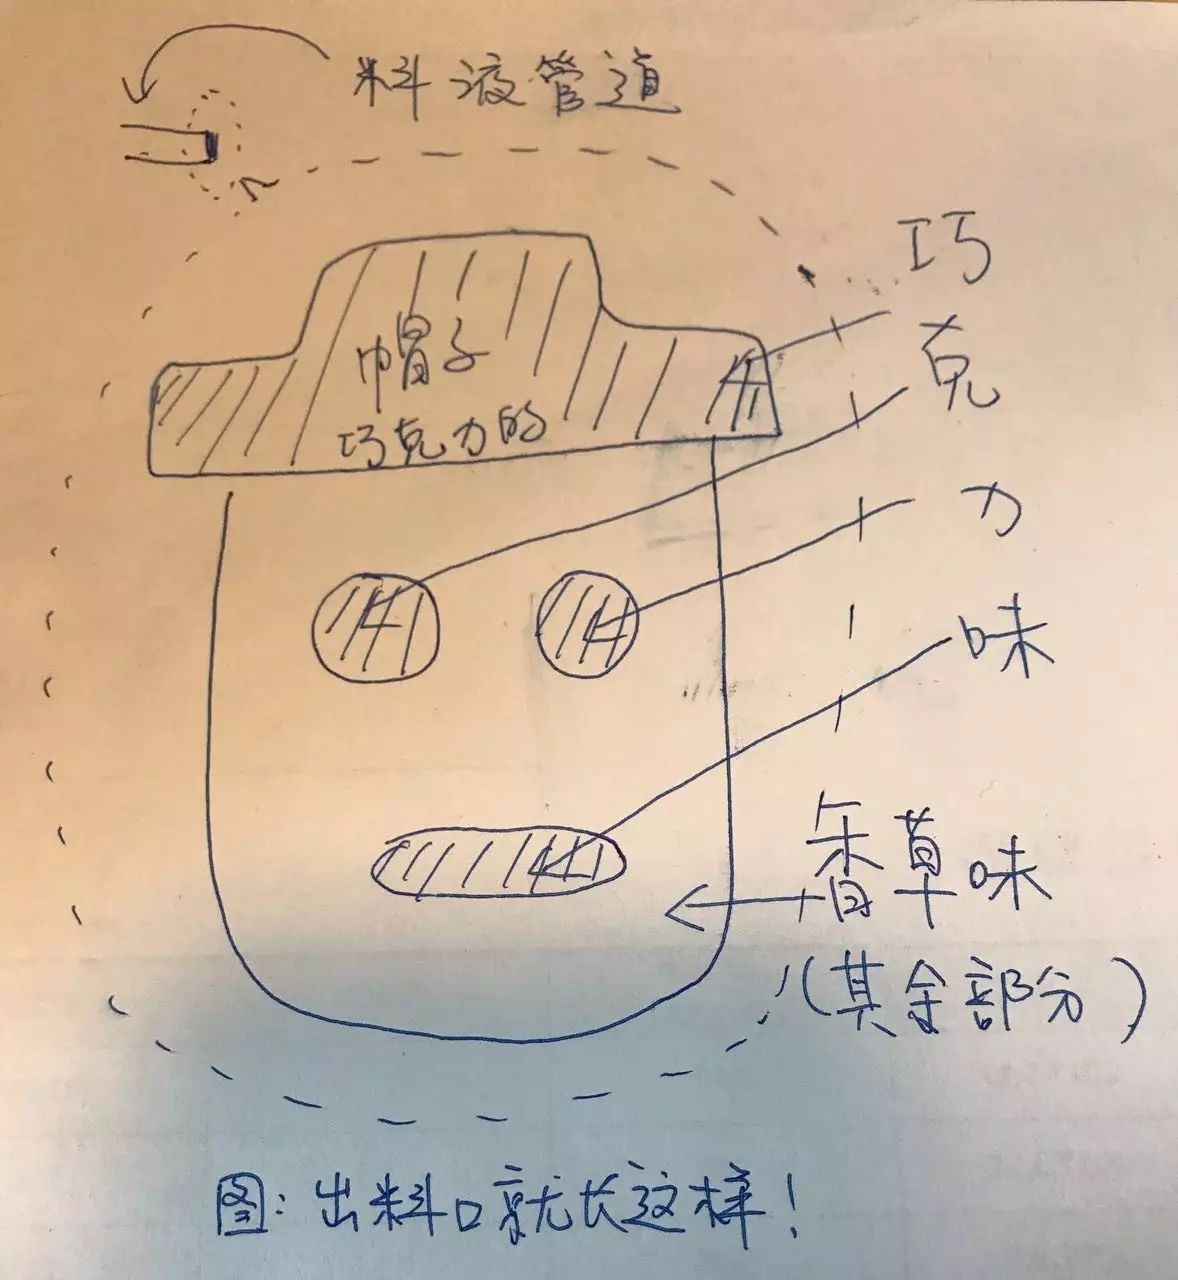 料液管道
帽子
巧克力的
巧
克
力
味
香草味
(其余部分)
图:出料口就长这样!